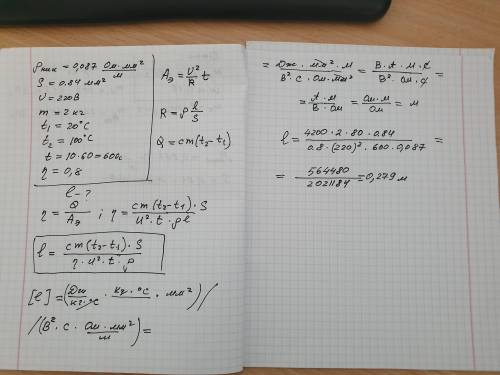 ρник = 0,087 Ом·мм²/м
S = 0.84 мм²
U = 220В
m = 2 кг
t₁ = 20°С
t₂ = 100°С
t = 10·60 = 600с
η = 0,8
l - ?
Aэ = U²/R t
R = ρ l/S
Q = cm(t₂-t₁)
η = Q/Aэ ; η = cm(t₂-t₁)·S / U²·t·ρl
l = cm(t₂-t₁)·S / η·U²·t·ρ
[l] = (Дж/кг·°С · кг·°С · мм²)/
/(В²·с·Ом·мм²/м) =
= Дж·мм²·м / В²·с·Ом·мм² = В·А·м·с / В²·Ом·с =
= А·м / В·Ом = Ом·м / Ом = м
l = 4200·2·80·0.84 / 0.8·(220)²·600·0,087 =
= 564480 / 2021184 = 0,279 м